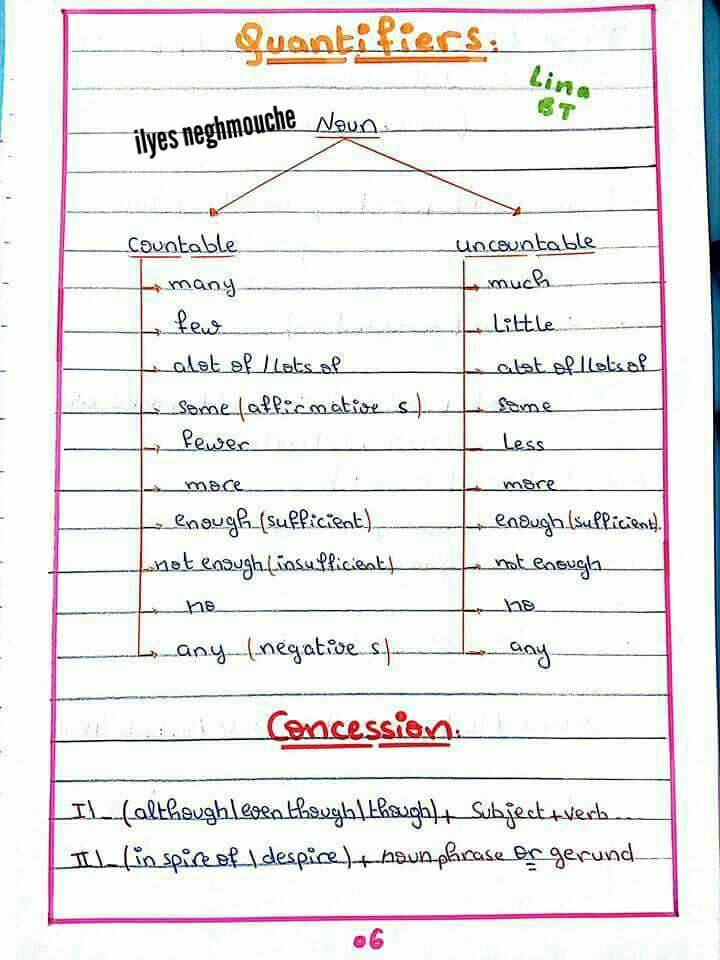 Quantifiers.
Lina
BT
ilyes neghmouche
Noun.
countable uncountable
many much
few little
alot of / lots of alot of / lots of
some (affirmative s) some
fewer less
more more
enough (sufficient) enough (sufficient).
not enough (insufficient) not enough
no no
any (negative s) any
Concession.
I\_ (although \ even though \ though) + subject + verb
II\_ (in spire of \ despire) + noun phrase or gerund
06